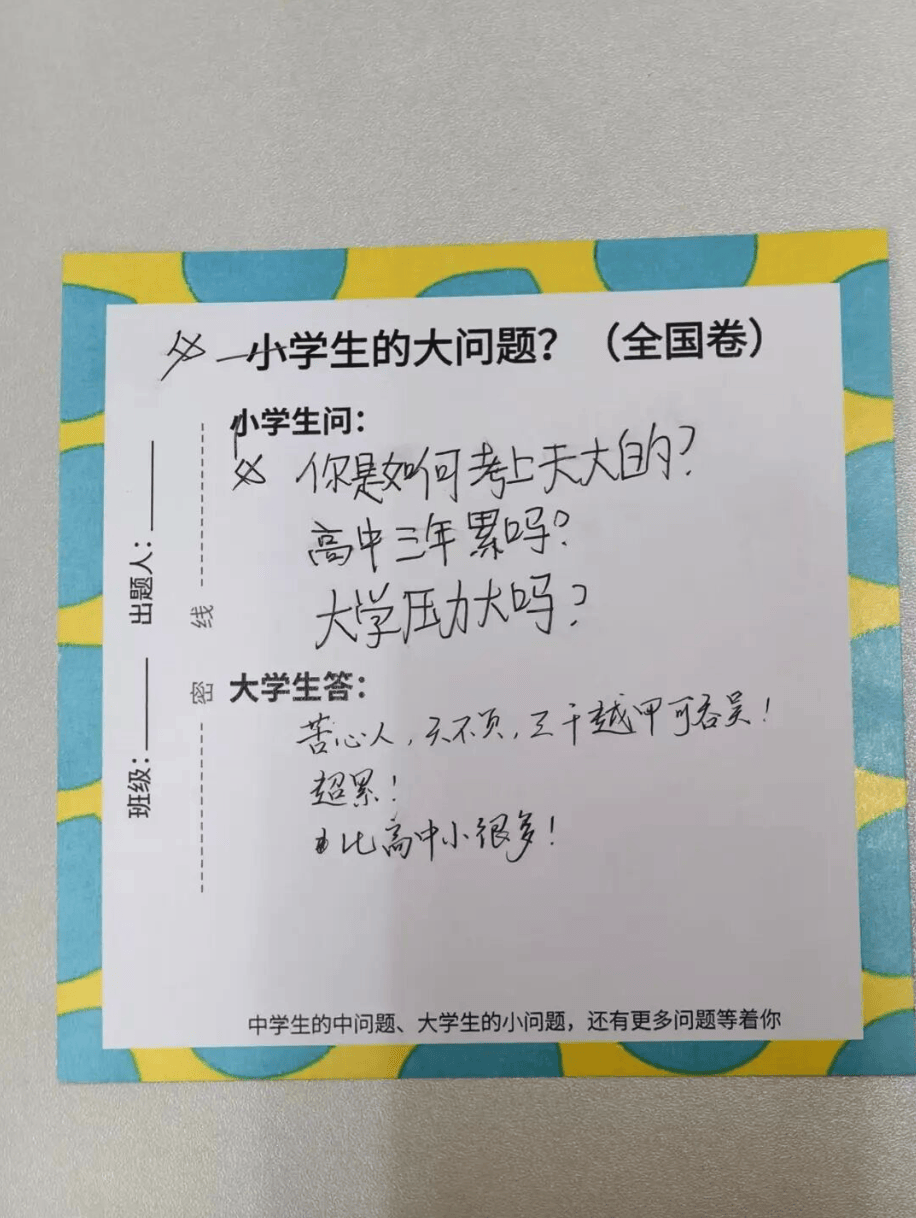 幼小学生的大问题？（全国卷）
小学生问：
幼 你是如何考上天大的？
高中三年累吗？
大学压力大吗？
大学生答：
苦心人，天不负，三千越甲可吞吴！
超累！
比高中小很多！
中学生的中问题、大学生的小问题，还有更多问题等着你
班级：
出题人：
密
线